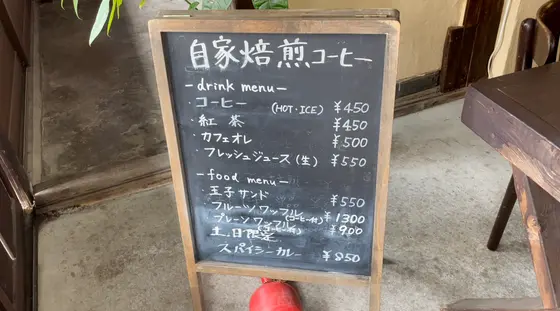 自家焙煎コーヒー
-drink menu-
・コーヒー (HOT・ICE) ¥450
・紅茶 ¥450
・カフェオレ ¥500
・フレッシュジュース(生) ¥550
-food menu-
・玉子サンド ¥550
フルーツワッフル(コーヒー付) ¥1300
プレーンワッフル ¥900
土日限定
スパイシーカレー ¥850